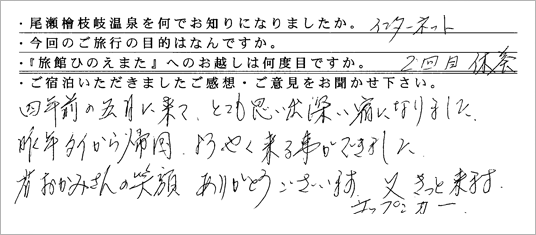 ・尾瀬檜枝岐温泉を何でお知りになりましたか。 インターネット
・今回のご旅行の目的はなんですか。
・『旅館ひのえまた』へのお越しは何度目ですか。 2回目 休養
・ご宿泊いただきましたご感想・ご意見をお聞かせ下さい。
四年前の五月に来て、とても思い出深い宿になりました。
昨年タイから帰国、ようやく来る事ができました。
若おかみさんの笑顔 ありがとうございます。又きっと来ます。